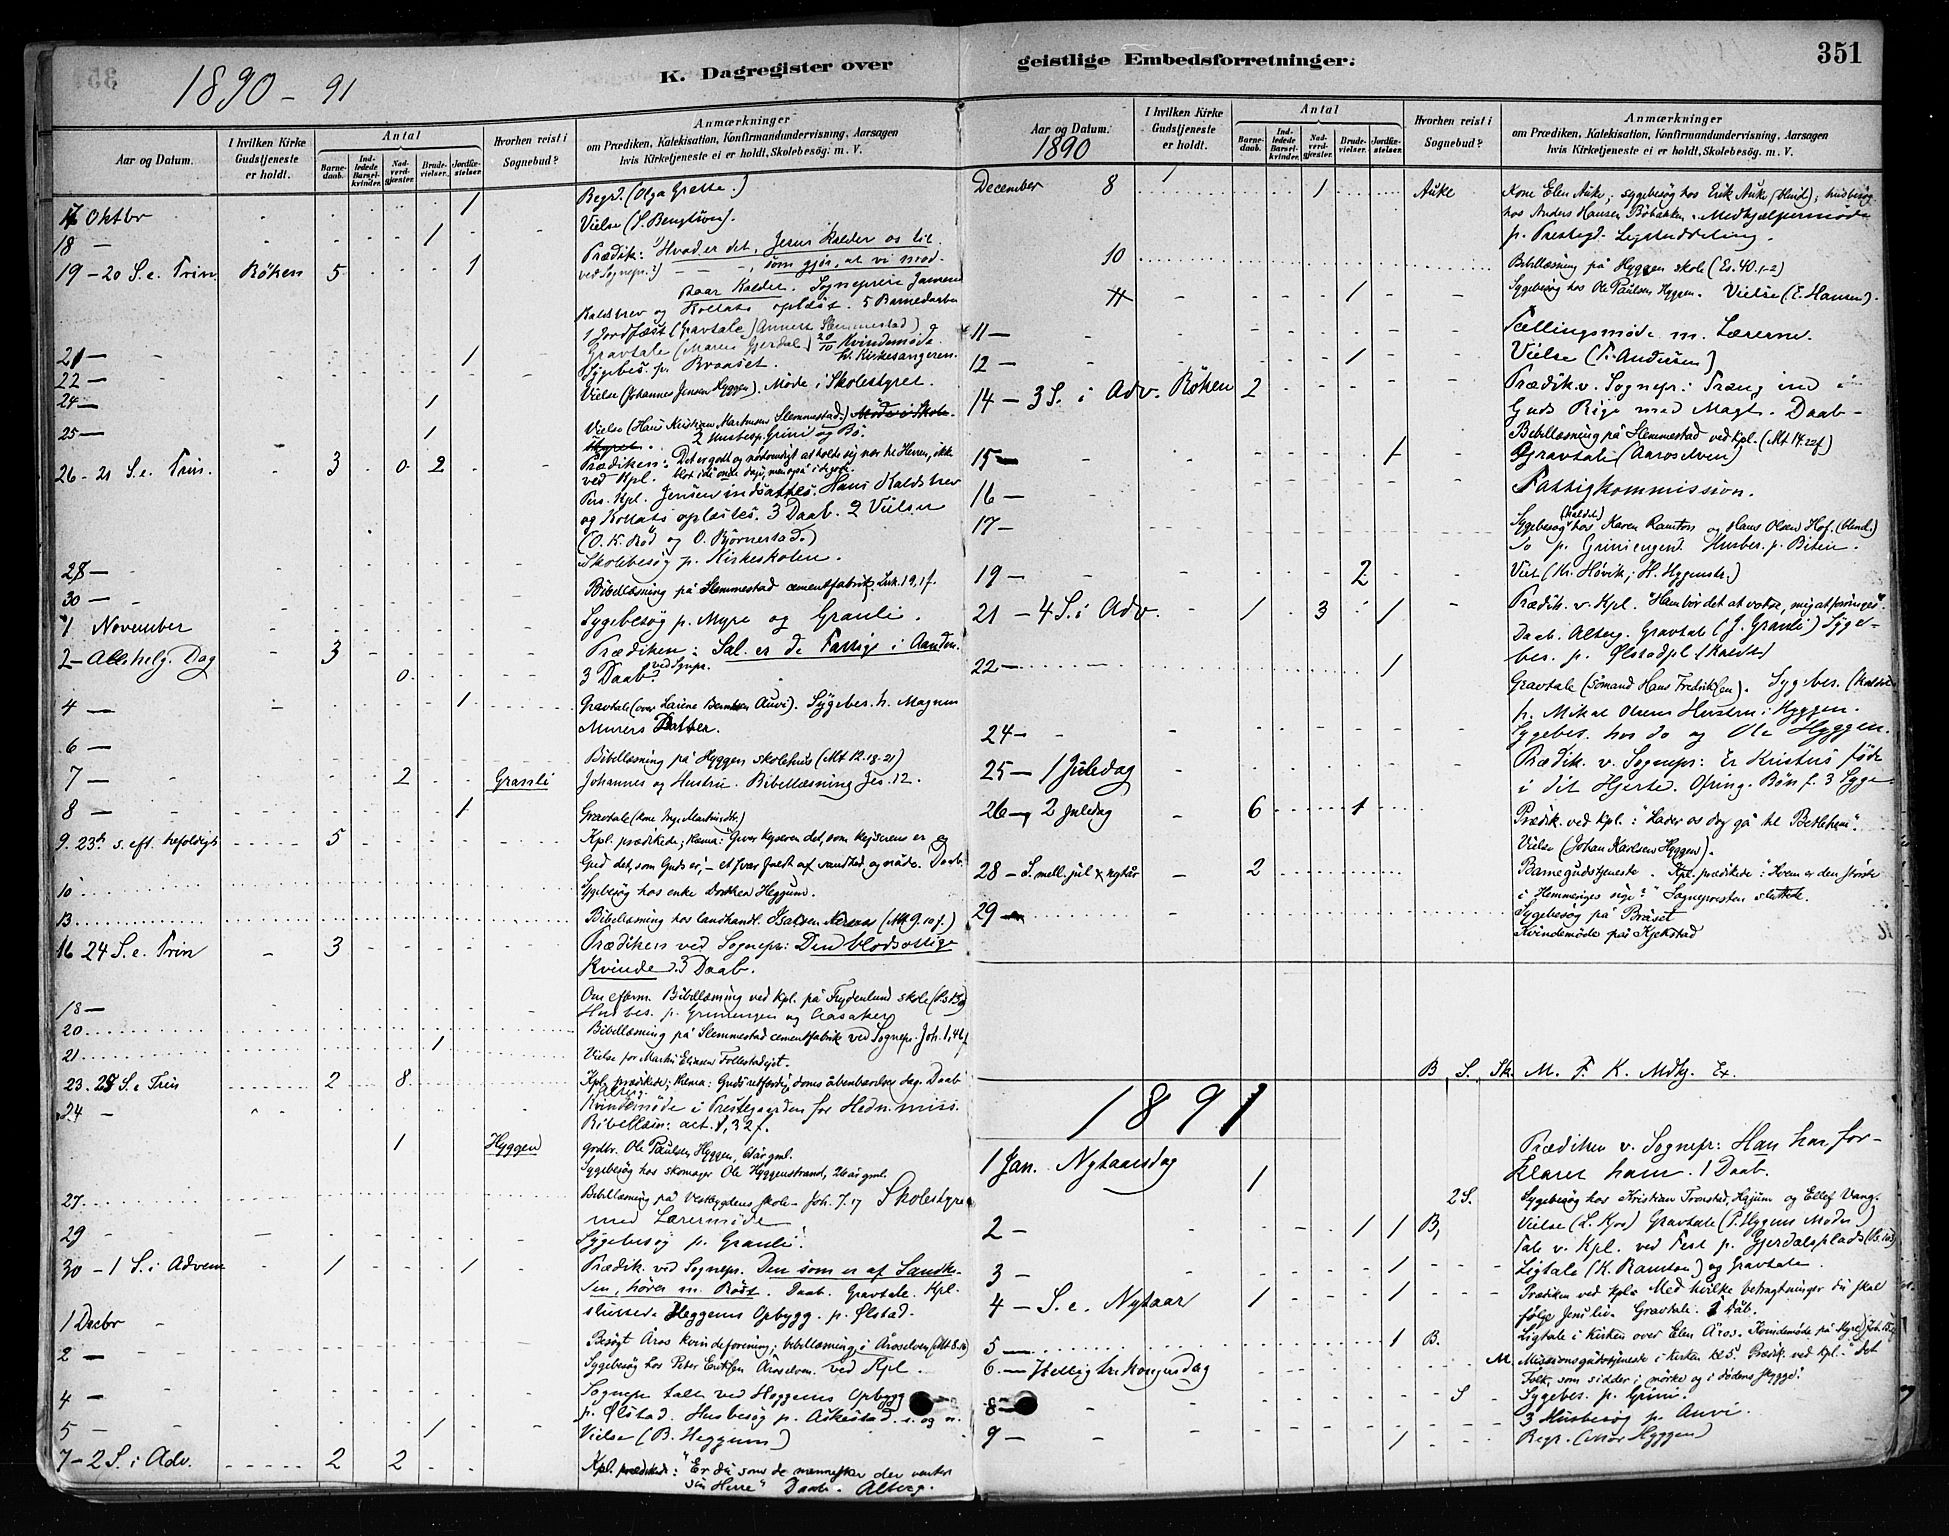 1890 - 91
K. Dagregister over
Aar og Datum.
I hvilken Kirke Gudstjeneste er holdt.
Antal
Barnedaab.
Indledede Barselkvinder.
Nadverdgjæster.
Brudevielser.
Jordfæstelser.
Hvorhen reist i Sognebud?
Anmærkninger
om Prædiken, Katekisation, Konfirmandundervisning, Aarsagen
hvis Kirketjeneste ei er holdt, Skolebesøg: m. V.
17 Oktbr 1 Begr. (Olga Grette.)
18 — 1 Vielse (S. Bengtson).
19 - 20 S. e. Trin Röken 5 1 Prædik: Hvad er det, Jesus kalder os til
ved Sognepr. som gjör, at vi mod-
staar Kaldet. Sogneprest Jansens
Kaldsbrev og Kollats oplæst. 5 Barnedaab
1 Jordfæst (Gravtale)
21 — 1 Gravtale (Maren Gjerdal) 20/10 Kvindemøde
22 — Sygebes. p. Braaset. hr. Kirkesangeren.
24 — 1 Vielse (Johannes Jensen Hyggen). Møde i Skolestyret.
25 — 1 Vielse (Hans Kristian Martinsen Slemmestad.)
2 Husbesøg Grini og Bö.
26 - 21 S. e. Trin. 3 0 2 Prædiken: Det er godt og nødvendigt at holde sig nær til Herren, ikke
ved Kpl. blot i de onde dage, men også i de gode.
Pers. Kpl. Jensen indsattes. Hans Kaldsbrev
og Kollats oplæstes. 3 Daab. 2 Vielser
(O. K. Röd og O. Björnestad.)
28 — Skolebesög p. Kirkeskolen.
30 — Bibellæsning på Slemmestad cementfabrik. Luk. 19, 1 f.
1 November Sygebesög p. Myre og Granli.
2 - Allehelg. Dag 3 0 Prædiken: Sal. er de Fattige i Aanden.
3 Daab. ved Sognpr.
4 — 1 Gravtale (over Lairine Berntsen Auvi). Sygebes. h. Magnus
Murers Datter.
6 — Bibellæsning på Hyggen skolehus (Mt 12. 18-21)
7 — 2 Granli Johannes og Hustru. Bibellæsning Jes. 12.
8 — 1 Gravtale
9. 23de s. eft. trefoldigh 5 Kpl. prædikede; tema: Giver kejseren det, som kejserens er og
Gud det, som Guds er, - et svar fuldt af sandhed og nåde. Daab.
10 Sygebesög hos enke Dorthea Heggum.
13. Bibellæsning hos landhandl. Isaksen Nærsnæs (Mt 9. 10 f.)
16 24 S. e. Trin 3 Prædiken ved Sognepr: Den blodsottige
Kvinde. 3 Daab.
Om efterm. Bibellæsning ved Kpl. på Frydenlund skole
18 — Husbes. p. Grimengen og Aasaker
20 Bibellæsning på Slemmestad cementfabrik ved Sognepr. Joh. 1, 46 f
21 1 Vielse for Martin Eliasen Follestadejet.
23. 25 S. e Trin 2 8 Kpl. prædikede; tema: Guds retfærdig doms åbenbarelses dag. Daab
Alterg.
24 — Kvindemøde i Prestegaarden for Hedn. miss.
Bibellæsn: act. 1, 32 f.
1 Hyggen grdbr. Ole Paulsen Hyggen, 61 år gml.
Sygebesög hos skomager Ole Hyggenstrand, 26 år gml.
27 Bibellæsning på Vestbygdens skole - Joh. 7. 17 Skolestyre
med Lærermøde
29 Sygebesög p. Granli.
30 - 1 S. i Advent 1 1 Prædik. ved Sognepr. Den som er af Sandhe-
den, hörer m. Röst. Daab. Gravtale. Kpl.
sluttede Heggums Opbygg. p. Ølstad.
1 Decbr Besøgt Åros kvindeforening; bibellæsning i Åroselven (Mt 8. 16)
2 — Sygebesøg hos Peter Eriksen Åroselven ved Kpl.
4 — Sognepr. tale ved Heggums Opbygg
p. Ølstad. Husbesög p. Askestad
5 — 1 Vielse (B. Heggum)
7 - 2 S. i Adv. 2 2 Kpl. prædikede: "Er du som de mennesker der venter
sin Herre" Daab. Alterg.
geistlige Embedsforretninger.
351
Aar og Datum.
1890
I hvilken Kirke Gudstjeneste er holdt.
Antal
Barnedaab.
Indledede Barselkvinder.
Nadverdgjæster.
Brudevielser.
Jordfæstelser.
Hvorhen reist i Sognebud?
Anmærkninger
om Prædiken, Katekisation, Konfirmandundervisning, Aarsagen
hvis Kirketjeneste ei er holdt, Skolebesøg: m. V.
December 8 1 Auke Kone Elen Auke; sygebesøg hos Erik Auke (blind); husbesøg
hos Anders Hansen Böbakken. Medhjælpermøde
p. Prestegd. Legatuddeling.
10 Bibellæsning på Hyggen skole (Es. 40. 1-2)
1 Sygebesög hos Ole Paulsen Hyggen. Vielse (E. Hansen).
11 — Tællingsmøde m. Lærerne.
12 — 1 Vielse (P. Andersen)
14 — 3 S. i Adv. Röken 2 Prædik. v. Sognepr: Træng ind i
Guds Rige med Magt. Daab
Bibellæsning på Slemmestad ved kpl. (Mt. 14. 22 f)
15 — 1 Gravtale (Aaroselven)
16 — Fattigkommission.
17 — Sygebesög (kaldet) hos Karen Ramton og Hans Olsen Hof. (blind.)
do p. Griniengen. Husbes. p. Biten.
19 — 2 Viet (Kr. Høvik; H. Hyggenstr.)
21 — 4 S. i Adv. 1 3 1 Prædik. v. Kpl. "Ham bör det at vokse, mig at forringes".
Daab. Alterg. Gravtale (J. Granli) Syge-
bes. p. Ølstadpl. (Kaldet)
22 — 1 Gravtale (Sømand Hans Fredriksen). Sygebes. (Kaldet
p. Mikal Olsens Hustru i Hyggen.
24 — Sygebes. hos do og Ole Hyggen.
25 — 1 Juledag Prædik. v. Sognepr: Er Kristus føde
i dit Hjerte. Ofring. Bön f. 3 Syge
26 — 2 Juledag 6 1 Prædik. ved kpl.: "Lader os dog gå til Betlehem".
Vielse (Johan Karlsen Hyggen).
28 — S. mell. jul & nytår 2 Barnegudstjeneste. Kpl. prædikede: "Hvem er den störste
i Himmeriges rige?" Sognepresten sluttede.
29 — Sygebesøg på Bråset
Kvindemøde på Kjekstad
B S. Sk. M. F. K. Mdhj. Ex.
1891
1 Jan. Nytaarsdag 1 Prædiken v. Sognepr: Han har for-
klaret ham. 1 Daab.
2 S. Sygebesög hos Kristian Tronstad, Heggum og Ellef Vang.
2 — 1 1 B, Vielse (L. Kjos) Gravtale (P. Hyggens Moder)
Tale v. Kpl. ved Fest p. Gjerdalsplads (Ps. 103)
3 — 1 Ligtale (K. Ramton) og Gravtale.
4 — S. e. Nytaar 1 1 Prædiken ved kpl: Med hvilke betragtninger du skal
følge Jesu liv. Gravtale. 1 Dåb.
5 — 1 B. Ligtale i Kirken over Elen Åros. Kvindemøde på Myre
6 — Hellig tre kongersdag M. Missionsgudstjeneste i kirken kl 5. Prædik. ved kpl. "Det
Folk, som sidder i mörke og i dødens skygge".
8 — S Sygebes. p. Grini.
3 Husbesög p. Auvi.
9 — 1 Begr. (Mor Hyggen)